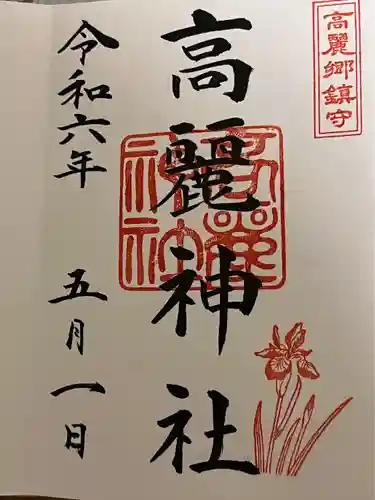 高麗郷鎮守
高麗神社
令和六年 五月一日